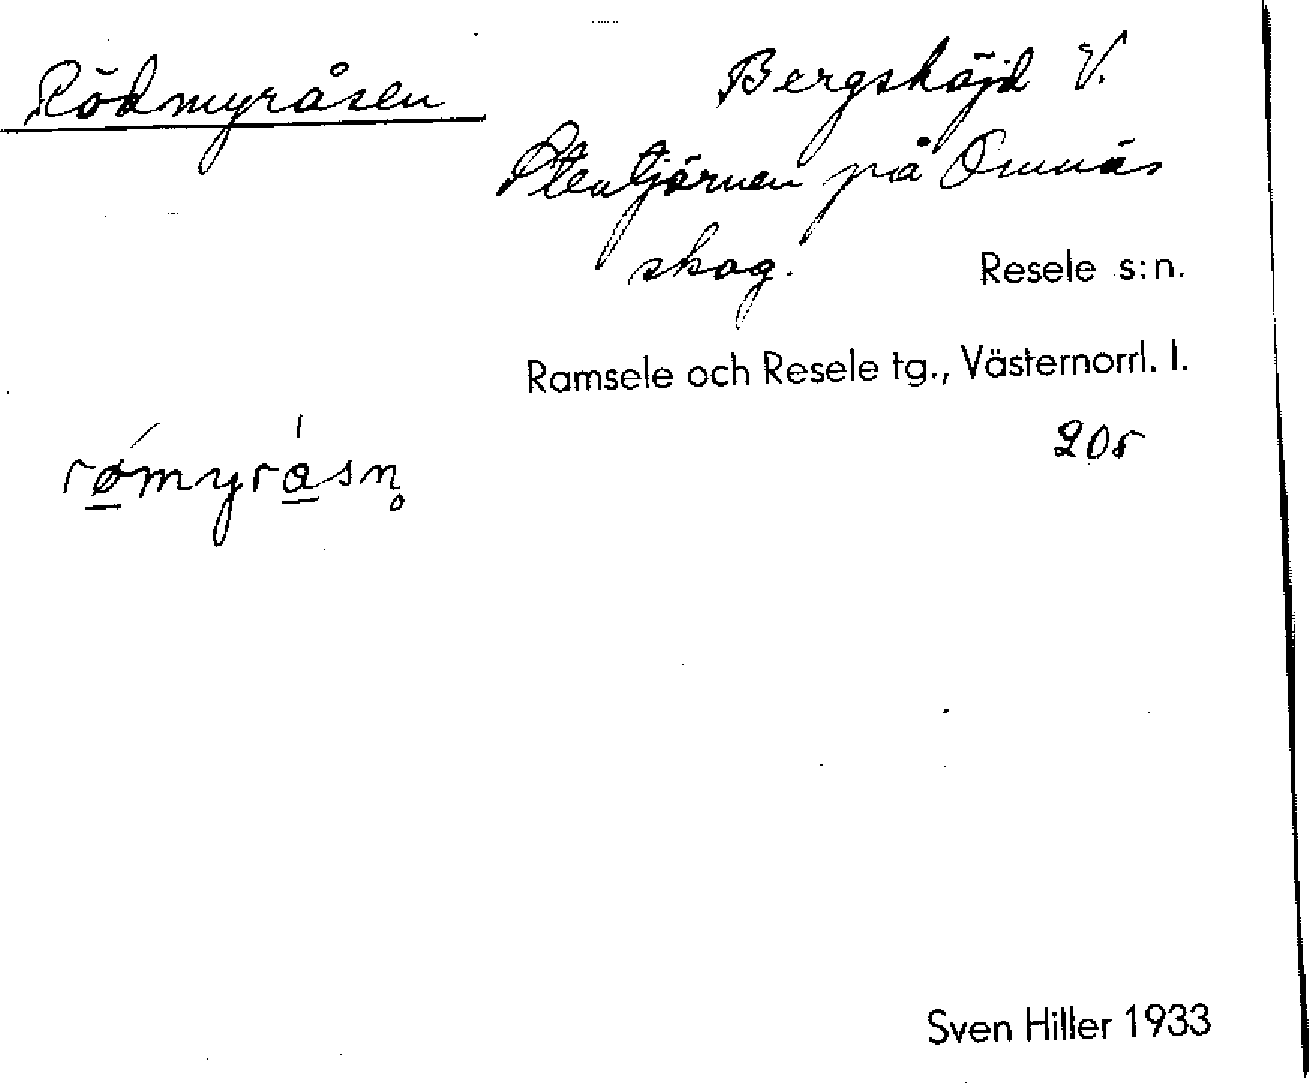 Rödmyråsen
Bergshöjd V.
Stentjärnen på Omnäs
skog.
Resele s:n.
Ramsele och Resele tg., Västernorrl. l.
205
rømyråsn̥
Sven Hiller 1933